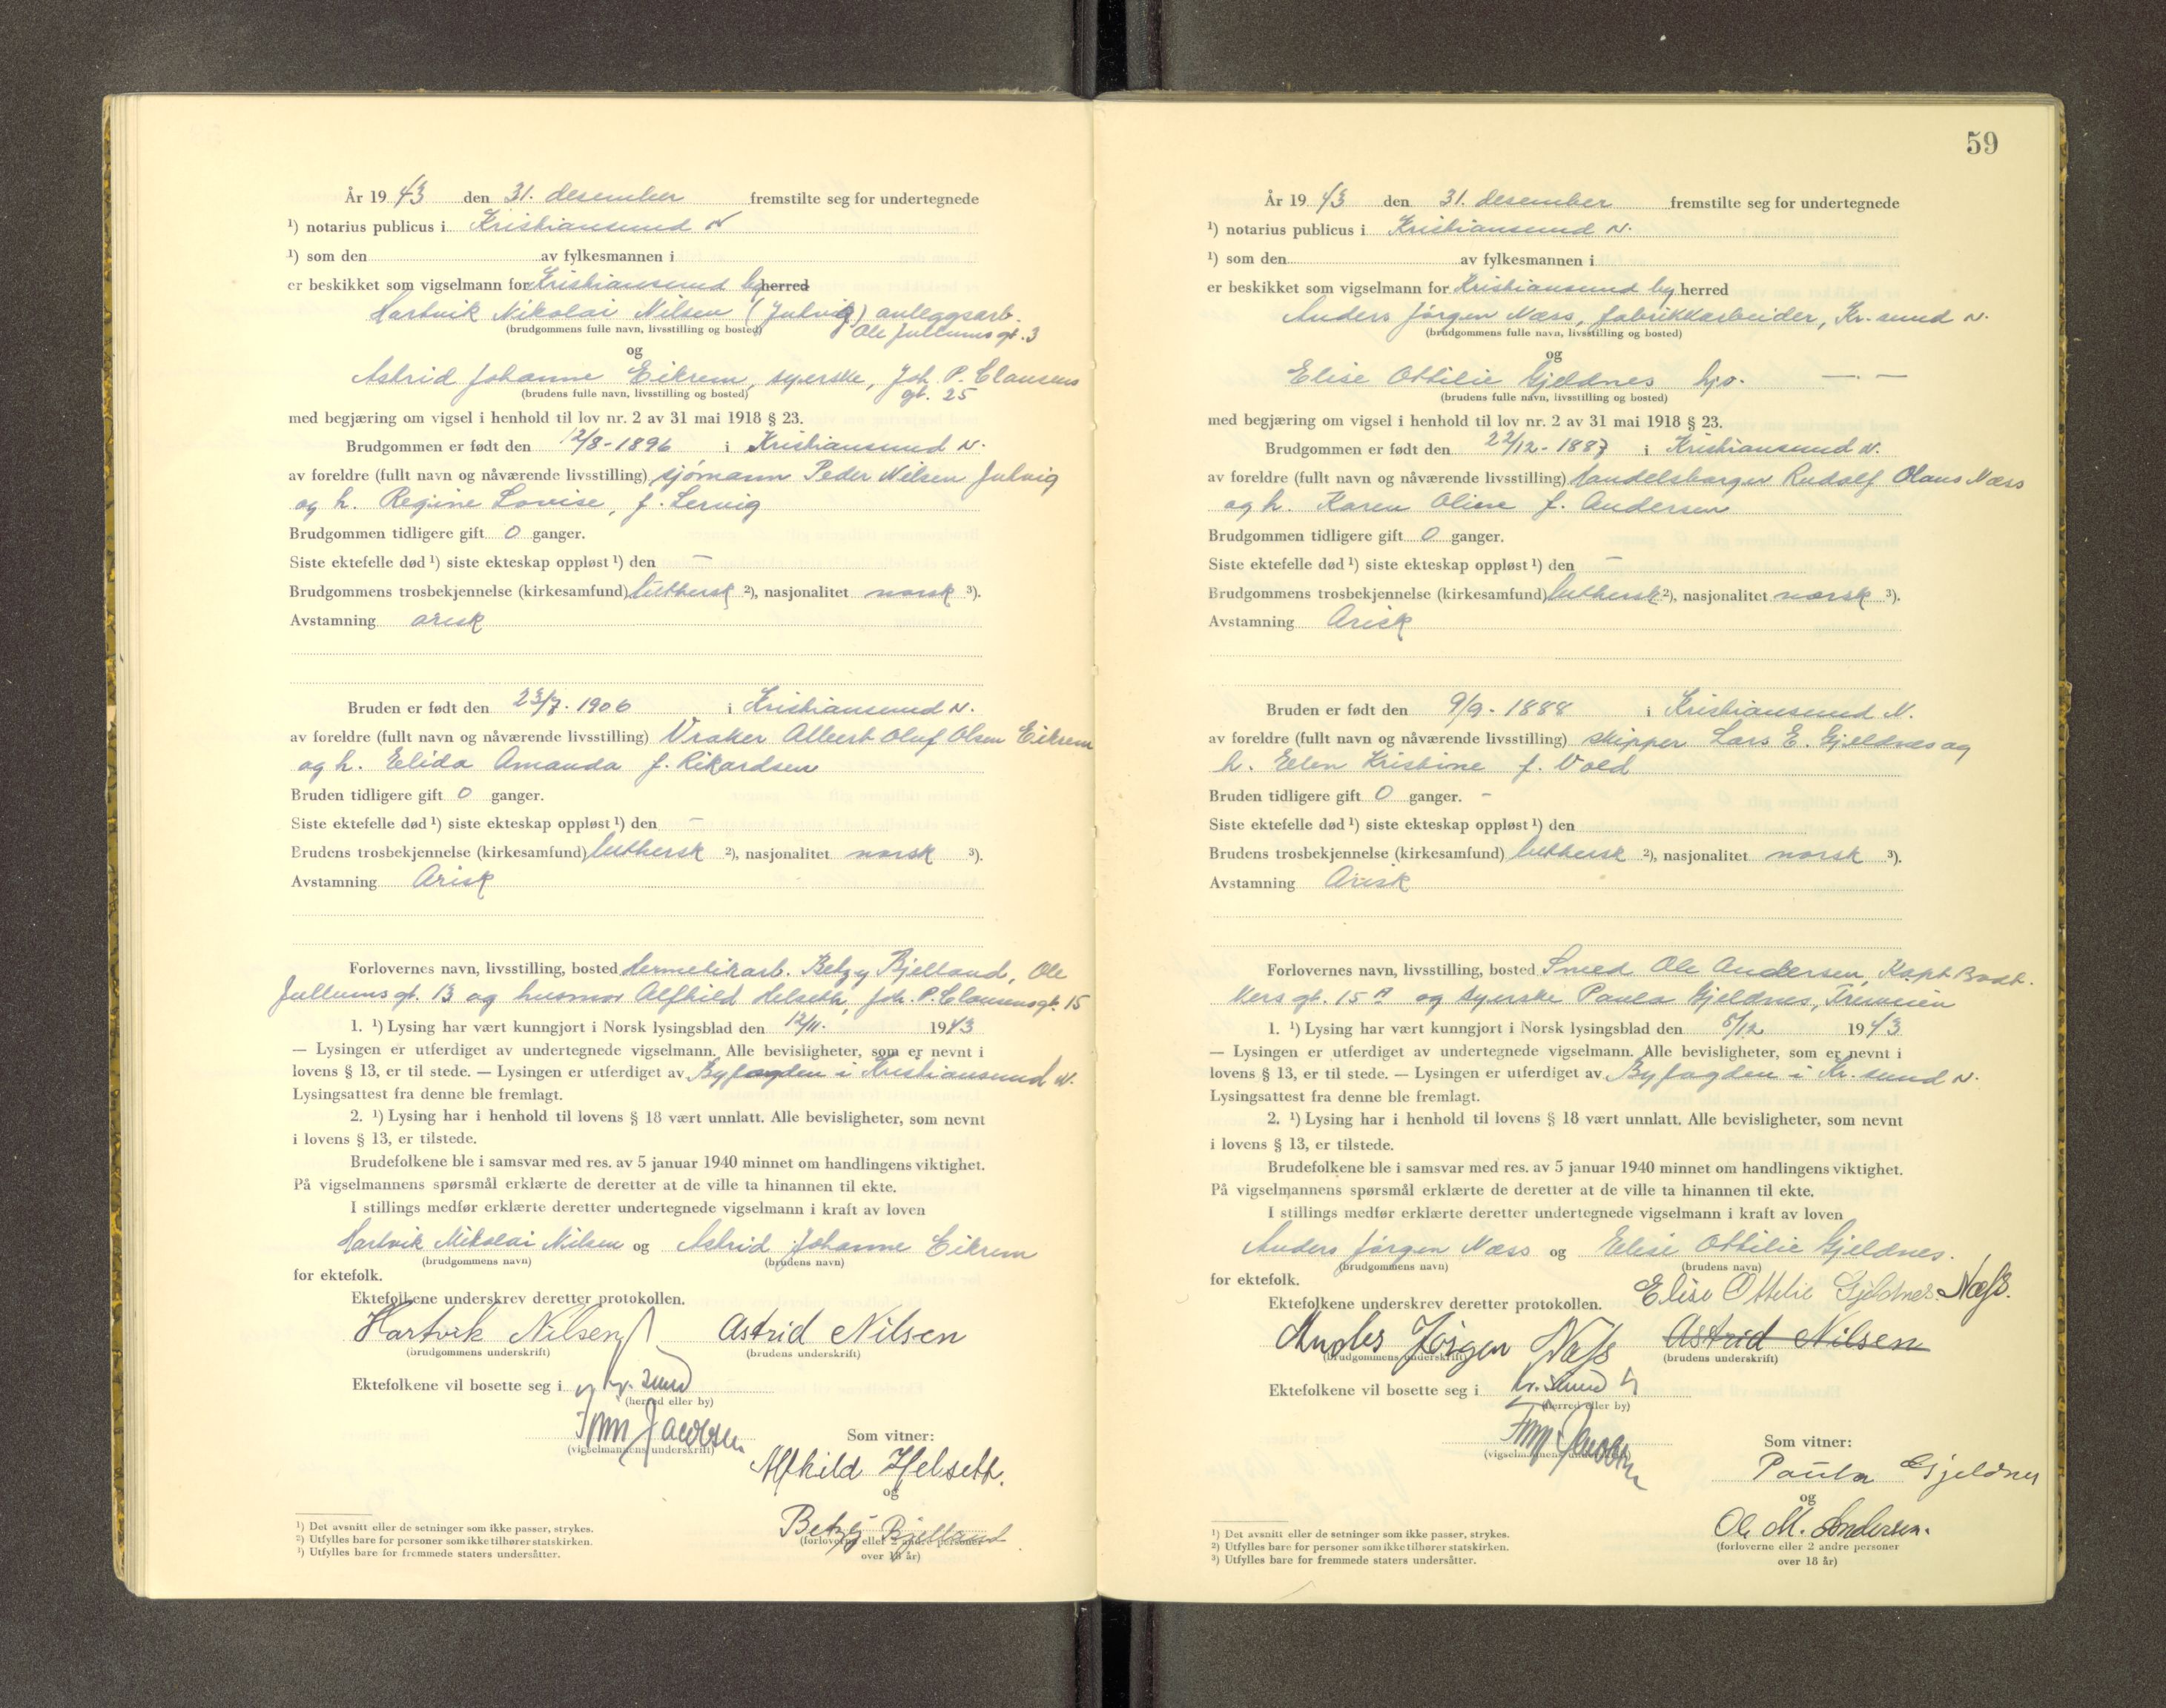 År 19 43 den 31. desember fremstilte seg for undertegnede
¹) notarius publicus i Kristiansund N
¹) som den av fylkesmannen i
er beskikket som vigselmann for Kristiansund by herred
Hartvik Nikolai Nilsen (Julvig) anleggsarb.
(brudgommens fulle navn, livsstilling og bosted)
Ole Jullumsgt. 3
og
Astrid Johanne Eikrem, syerske, Joh. P. Clausens
(brudens fulle navn, livsstilling og bosted)
gt. 25
med begjæring om vigsel i henhold til lov nr. 2 av 31 mai 1918 § 23.
Brudgommen er født den 12/8-1896 i Kristiansund N.
av foreldre (fullt navn og nåværende livsstilling) sjømann Peder Nilsen Julvig
og h. Regine Lovise, f. Lervig
Brudgommen tidligere gift 0 ganger.
Siste ektefelle død ¹) siste ekteskap oppløst ¹) den —
Brudgommens trosbekjennelse (kirkesamfund) luthersk ²), nasjonalitet norsk ³).
Avstamning arisk
Bruden er født den 23/7-1906 i Kristiansund N.
av foreldre (fullt navn og nåværende livsstilling) Vraker Albert Oluf Olsen Eikrem
og h. Elida Amanda f. Rikardsen
Bruden tidligere gift 0 ganger.
Siste ektefelle død ¹) siste ekteskap oppløst ¹) den —
Brudens trosbekjennelse (kirkesamfund) luthersk ²), nasjonalitet norsk ³).
Avstamning Arisk
Forlovernes navn, livsstilling, bosted Hermetikarb. Betzy Bjelland, Ole
Jullumsgt. 13 og husmor Alfhild Helseth, Joh. P. Clausensgt. 15
1. ¹) Lysing har vært kunngjort i Norsk lysingsblad den 12/11. 1943
— Lysingen er utferdiget av undertegnede vigselmann. Alle bevisligheter, som er nevnt i
lovens § 13, er til stede. — Lysingen er utferdiget av Byfogden i Kristiansund N.
Lysingsattest fra denne ble fremlagt.
2. ¹) Lysing har i henhold til lovens § 18 vært unnlatt. Alle bevisligheter, som nevnt
i lovens § 13, er tilstede.
Brudefolkene ble i samsvar med res. av 5 januar 1940 minnet om handlingens viktighet.
På vigselmannens spørsmål erklærte de deretter at de ville ta hinannen til ekte.
I stillings medfør erklærte deretter undertegnede vigselmann i kraft av loven
Hartvik Nikolai Nilsen og Astrid Johanne Eikrem
(brudgommens navn) (brudens navn)
for ektefolk.
Ektefolkene underskrev deretter protokollen.
Hartvik Nilsen Astrid Nilsen
(brudgommens underskrift) (brudens underskrift)
Ektefolkene vil bosette seg i Kr. sund
(herred eller by)
Finn Jacobsen
(vigselmannens underskrift)
Som vitner:
Alfhild Helseth.
og
Betzy Bjelland
(forloverne eller 2 andre personer
over 18 år)
¹) Det avsnitt eller de setninger som ikke passer, strykes.
²) Utfylles bare for personer som ikke tilhører statskirken.
³) Utfylles bare for fremmede staters undersåtter.
59
År 19 43 den 31. desember fremstilte seg for undertegnede
¹) notarius publicus i Kristiansund N.
¹) som den av fylkesmannen i
er beskikket som vigselmann for Kristiansund by herred
Anders Jørgen Næss, fabrikkarbeider, Kr. sund N.
(brudgommens fulle navn, livsstilling og bosted)
og
Elise Ottilie Gjeldnes hjv. — . —
(brudens fulle navn, livsstilling og bosted)
med begjæring om vigsel i henhold til lov nr. 2 av 31 mai 1918 § 23.
Brudgommen er født den 22/12-1887 i Kristiansund N.
av foreldre (fullt navn og nåværende livsstilling) Handelsborger Rudolf Olaus Næss
og h. Karen Oline f. Andersen
Brudgommen tidligere gift 0 ganger.
Siste ektefelle død ¹) siste ekteskap oppløst ¹) den —
Brudgommens trosbekjennelse (kirkesamfund) luthersk ²), nasjonalitet norsk ³).
Avstamning Arisk
Bruden er født den 9/9-1888 i Kristiansund N.
av foreldre (fullt navn og nåværende livsstilling) skipper Lars E. Gjeldnes og
h. Elen Kristine f. Vold
Bruden tidligere gift 0 ganger. -
Siste ektefelle død ¹) siste ekteskap oppløst ¹) den
Brudens trosbekjennelse (kirkesamfund) luthersk ²), nasjonalitet norsk ³).
Avstamning Arisk
Forlovernes navn, livsstilling, bosted Smed Ole Andersen, Kapt. Bødt-
kers gt. 15 A og syerske Paula Gjeldnes,
1. ¹) Lysing har vært kunngjort i Norsk lysingsblad den 5/12 1943
— Lysingen er utferdiget av undertegnede vigselmann. Alle bevisligheter, som er nevnt i
lovens § 13, er til stede. — Lysingen er utferdiget av Byfogden i Kr. sund N.
Lysingsattest fra denne ble fremlagt.
2. ¹) Lysing har i henhold til lovens § 18 vært unnlatt. Alle bevisligheter, som nevnt
i lovens § 13, er tilstede.
Brudefolkene ble i samsvar med res. av 5 januar 1940 minnet om handlingens viktighet.
På vigselmannens spørsmål erklærte de deretter at de ville ta hinannen til ekte.
I stillings medfør erklærte deretter undertegnede vigselmann i kraft av loven
Anders Jørgen Næss og Elise Ottilie Gjeldnes.
(brudgommens navn) (brudens navn)
for ektefolk.
Elise Ottilie Gjeldnes Næss.
Ektefolkene underskrev deretter protokollen.
Anders Jørgen Næss Astrid Nilsen
(brudgommens underskrift) (brudens underskrift)
Ektefolkene vil bosette seg i Kr. sund N
(herred eller by)
Finn Jacobsen
(vigselmannens underskrift)
Som vitner:
Paula Gjeldnes
og
Ole M. Andersen.
(forloverne eller 2 andre personer
over 18 år)
¹) Det avsnitt eller de setninger som ikke passer, strykes.
²) Utfylles bare for personer som ikke tilhører statskirken.
³) Utfylles bare for fremmede staters undersåtter.